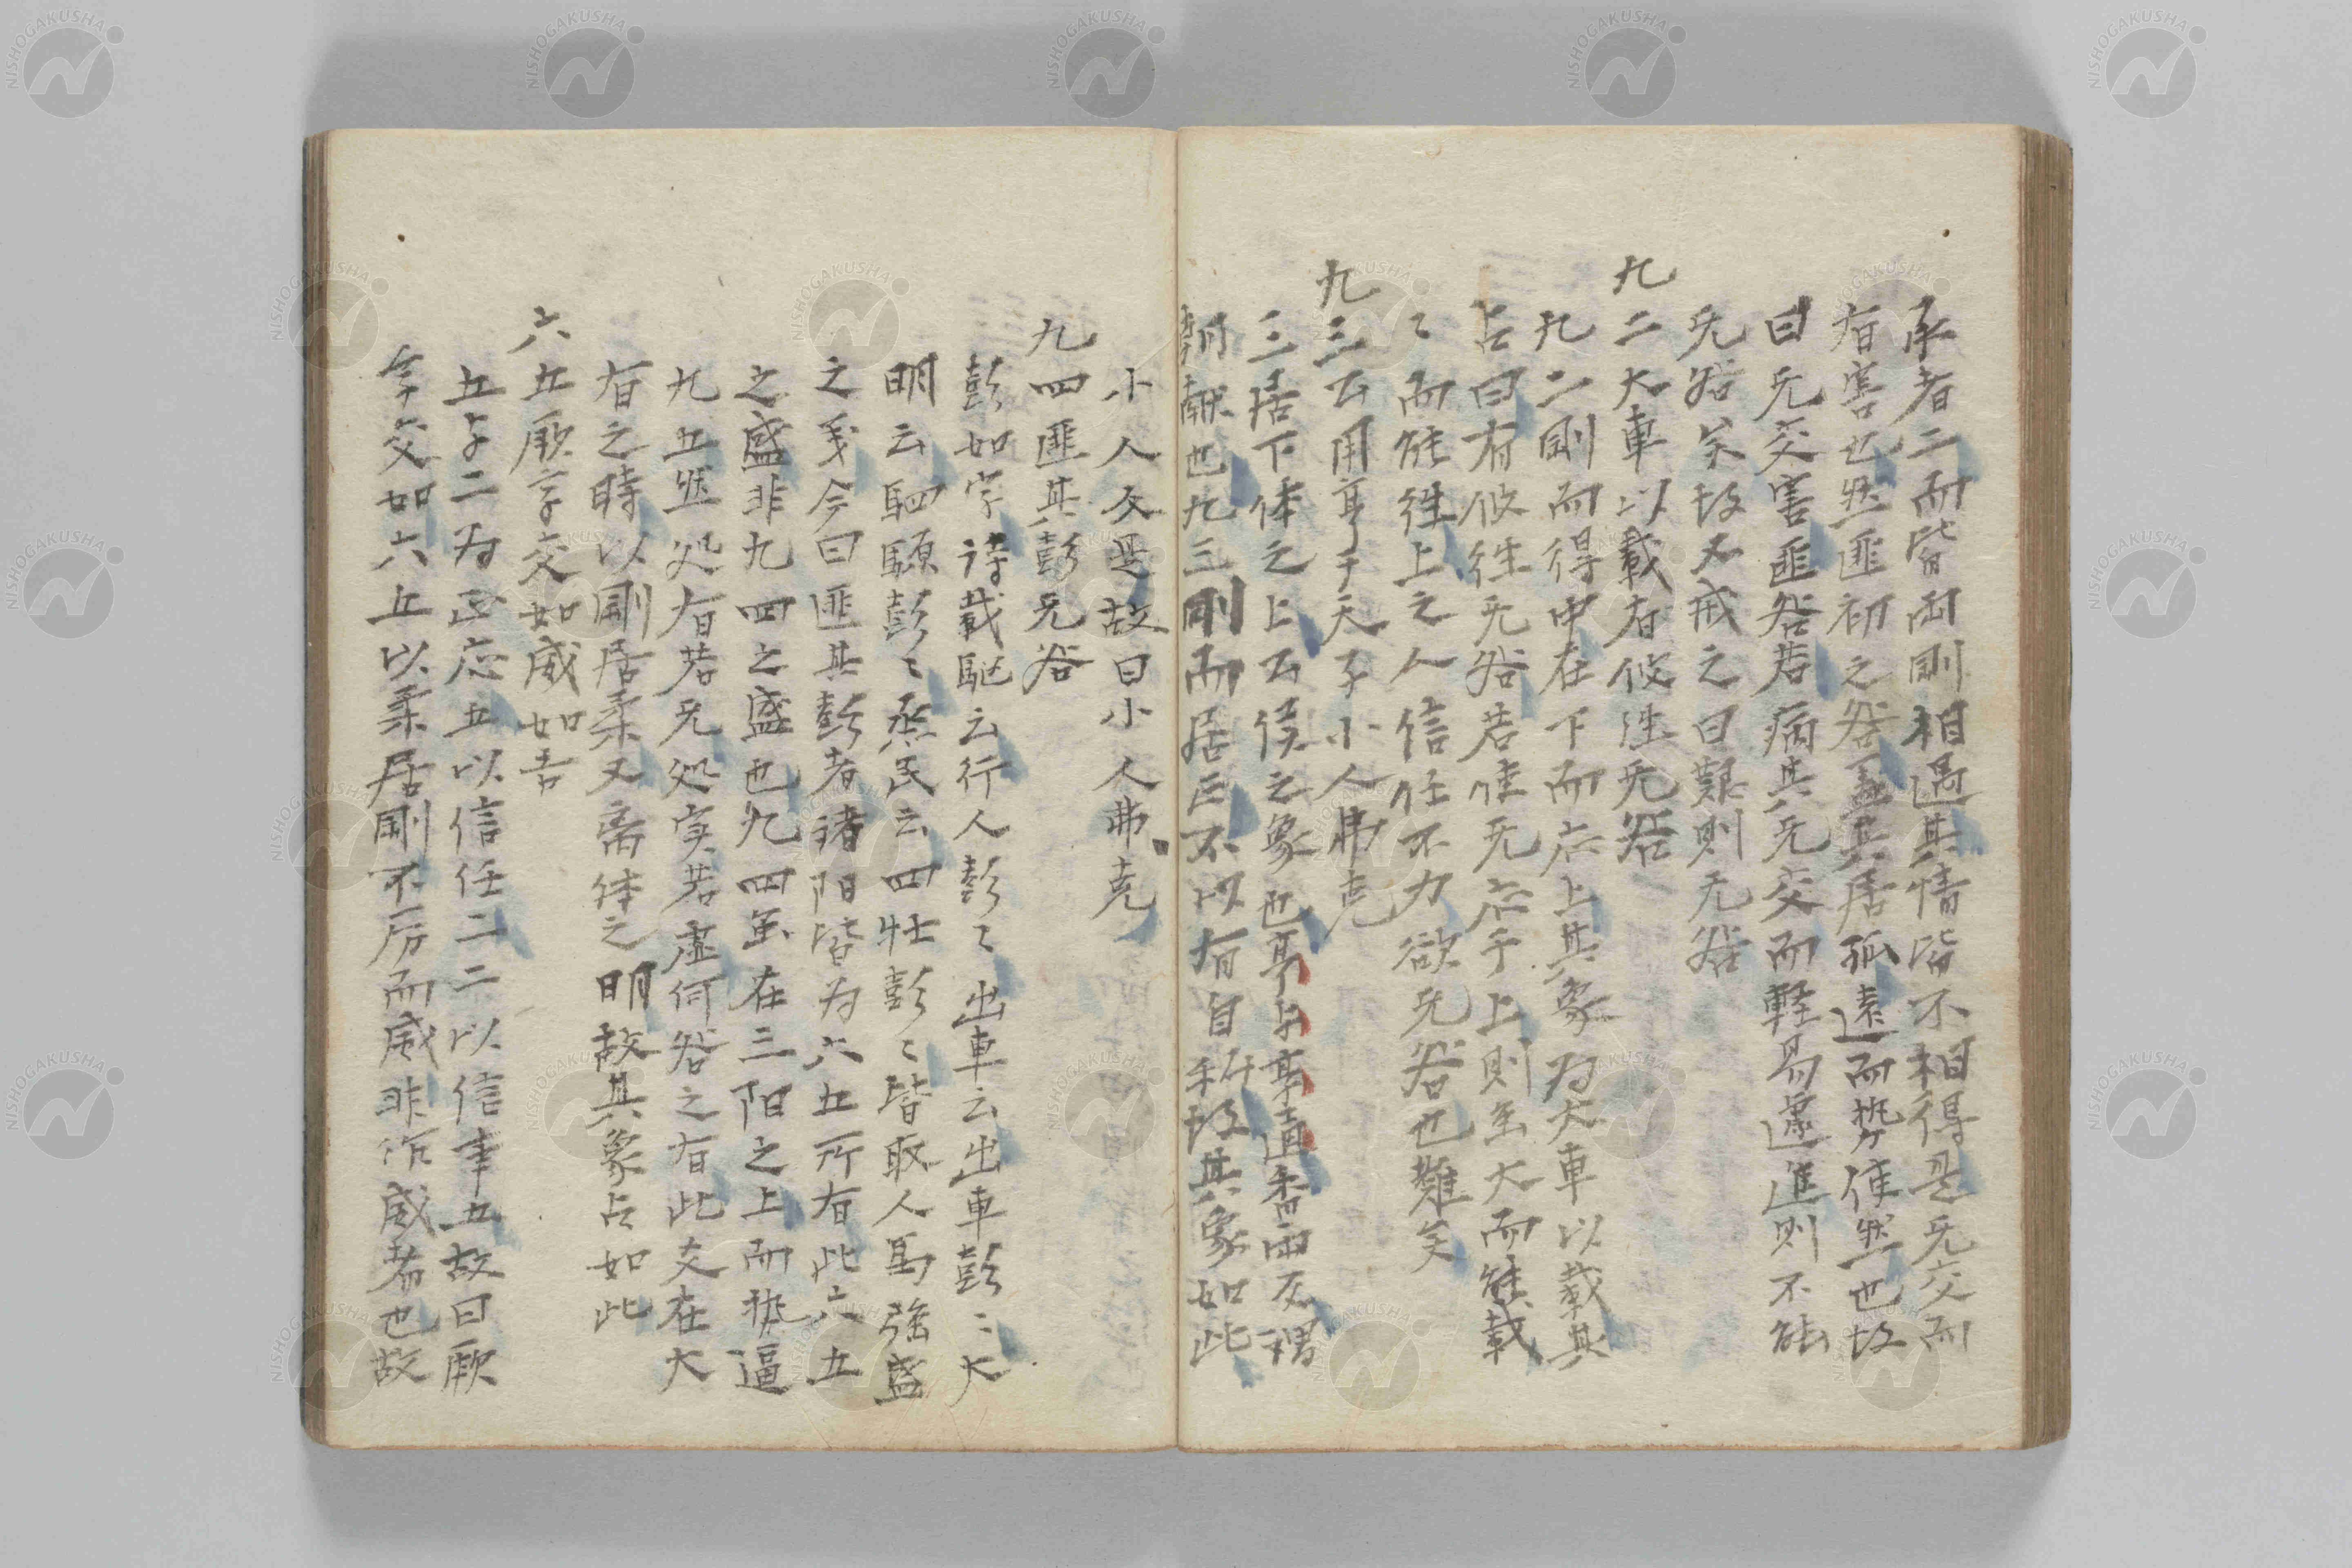 承者二而皆両剛相遇其情皆不相得是无交而
有害也然匪初之咎盖其居孤遠而勢使然也故
曰无交害匪咎若病其无交而軽易遽進則不能
无咎矣故又戒之曰艱則无咎
九二大車以載有攸往无咎
九二剛而得中在下而応上其象為大車以載其
占曰有攸往无咎若使无応于上則虽大而能載
之而能往上之人信任不力欲无咎也難矣
九三公用亨于天子小人弗克
三居下体之上公侯之象也亨与享通香而友謂
朝献也九三剛而居正不以有自私故其象如此
小人反是故曰小人弗克
九四匪其彭无咎
彭如字詩載駆云行人彭〻出車云出車彭〻大
明云駟騵彭〻烝民云四牡彭〻皆取人馬強盛
之義今曰匪其彭者諸陽皆為六五所有此六五
之盛非九四之盛也九四虽在三阳之上而勢逼
九五然処有若无処実若虚何咎之有此交在大
有之時以剛居柔又离体之明故其象占如此
六五厥孚交如威如吉
五与二为正応五以信任二二以信事五故曰厥
孚交如六五以柔居剛不厉而威非作威者也故